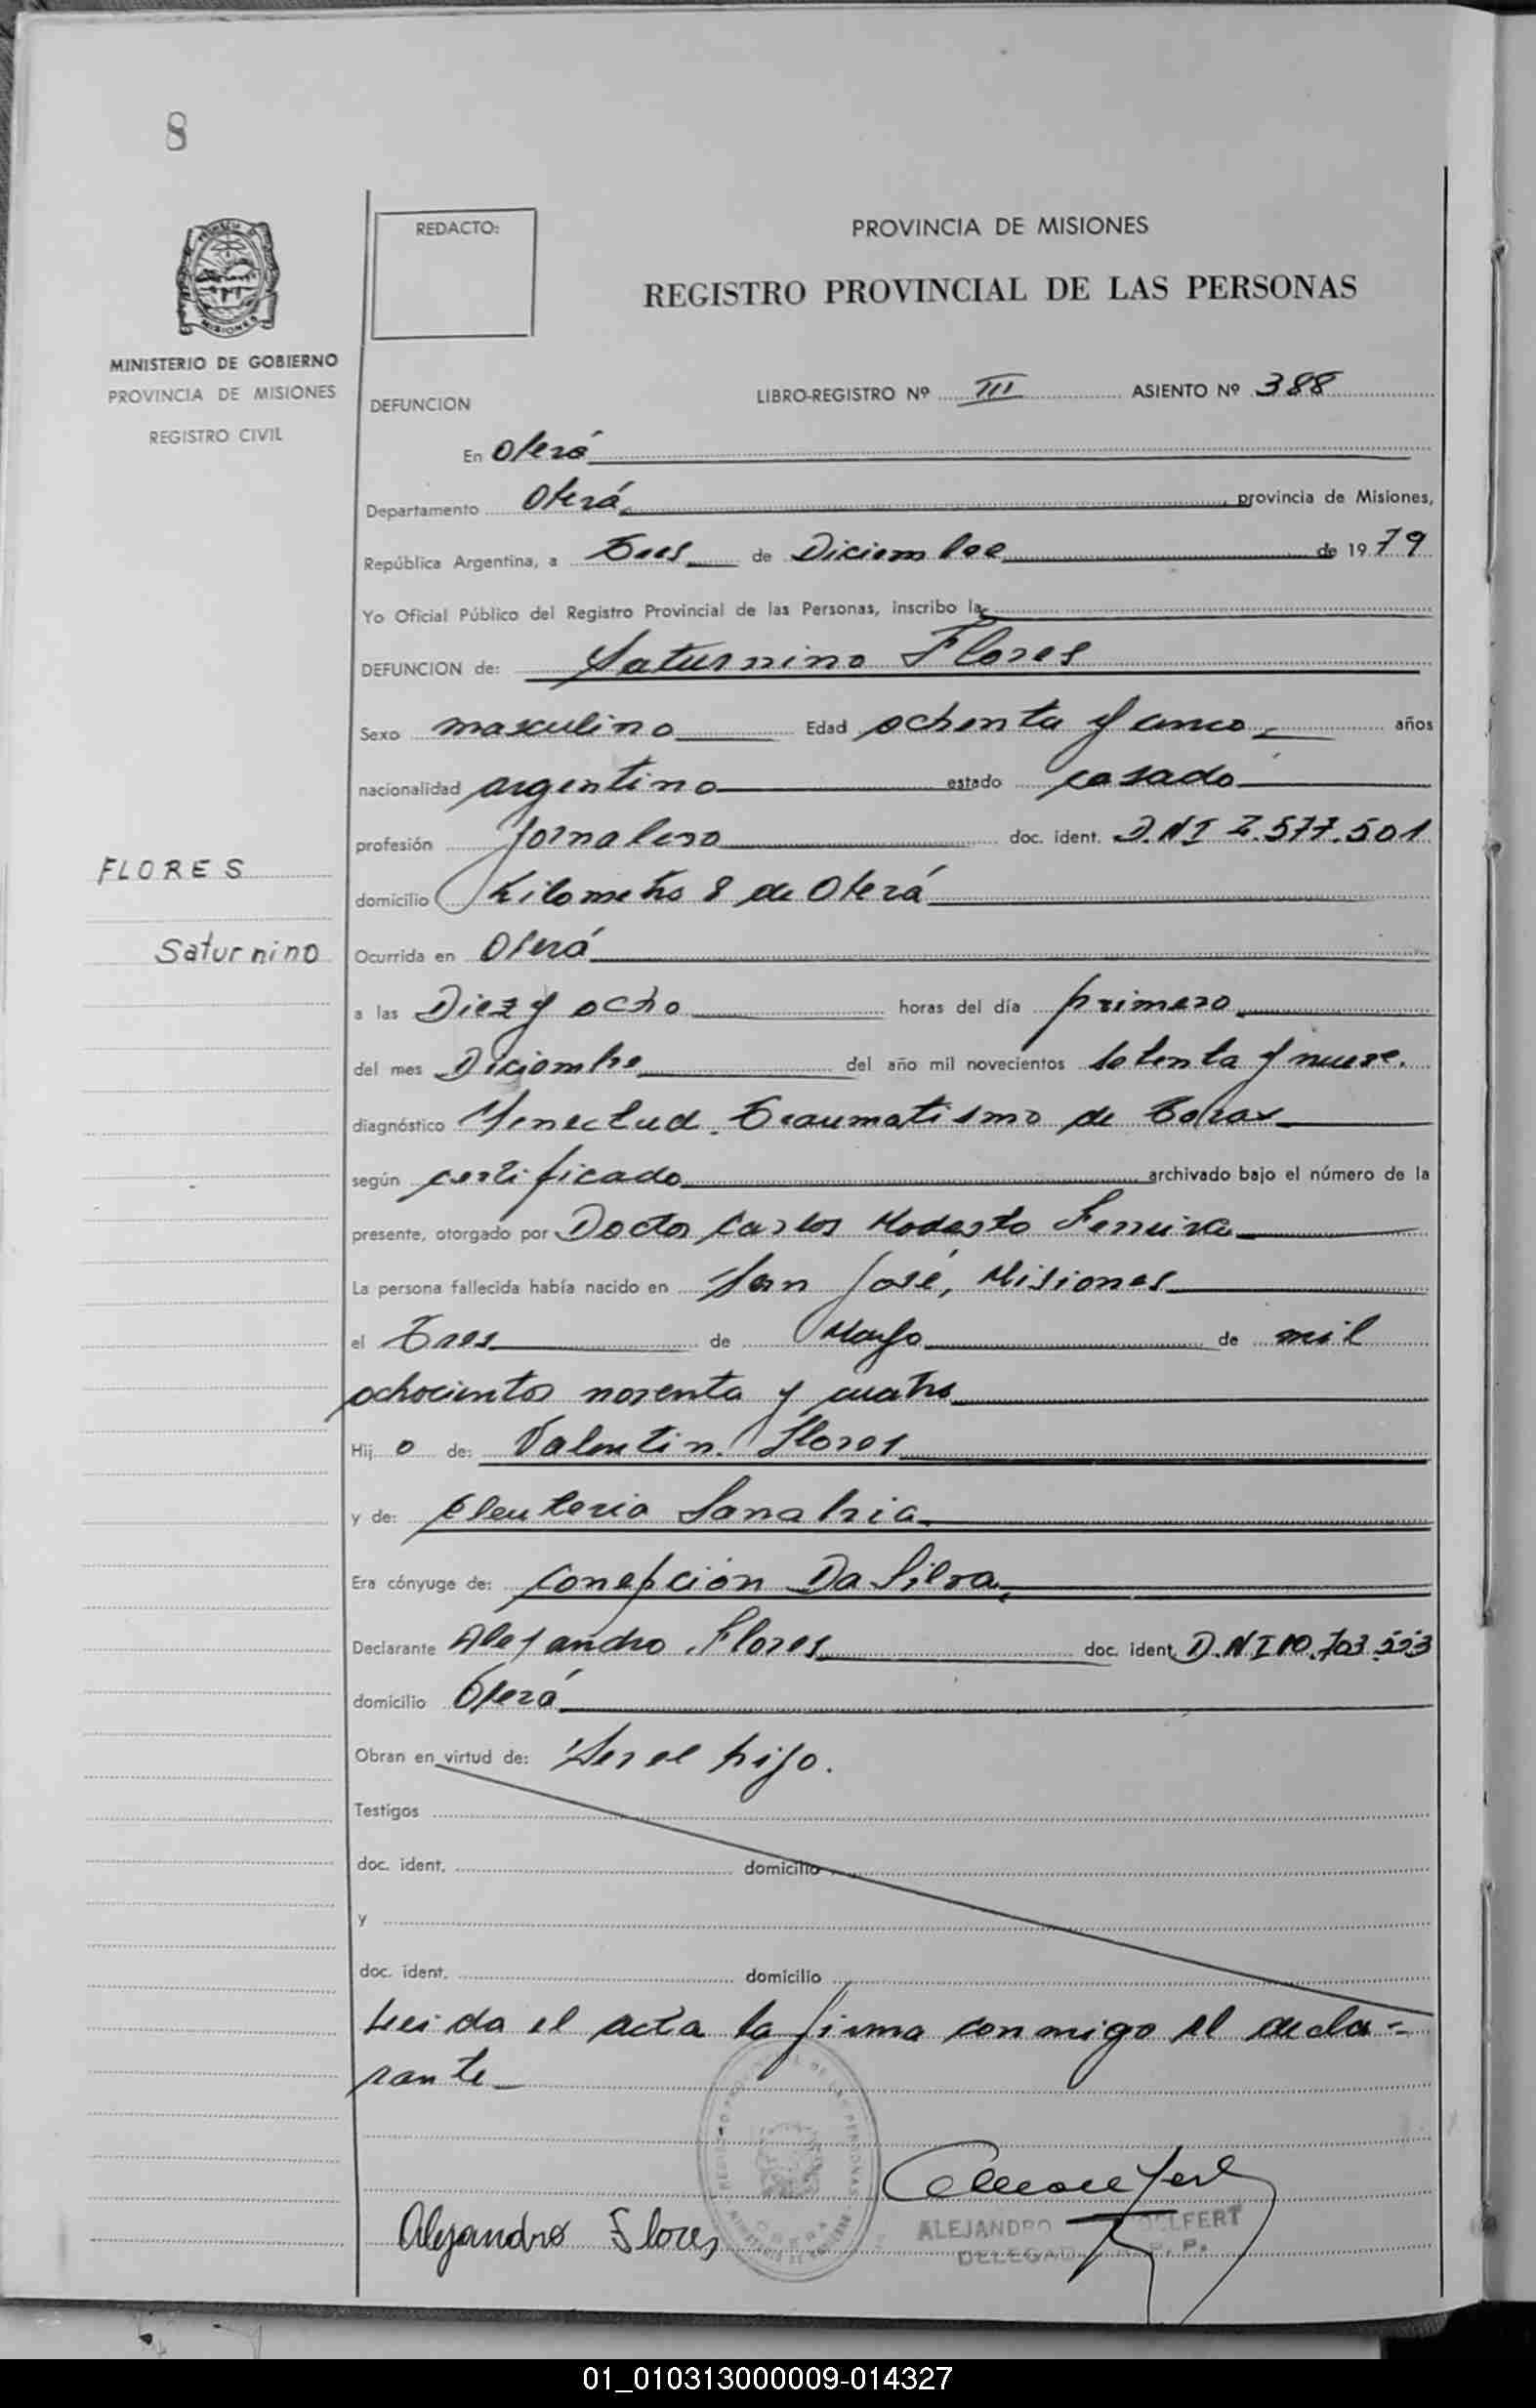 8
REDACTO:
PROVINCIA DE MISIONES
REGISTRO PROVINCIAL DE LAS PERSONAS
MINISTERIO DE GOBIERNO
PROVINCIA DE MISIONES
REGISTRO CIVIL
DEFUNCION LIBRO-REGISTRO Nº III ASIENTO Nº 388
En Oberá
Departamento Oberá, provincia de Misiones,
República Argentina, a Tres de Diciembre de 1979
Yo Oficial Público del Registro Provincial de las Personas, inscribo la
DEFUNCION de: Saturnino Flores
Sexo masculino Edad ochenta y cinco años
nacionalidad argentino estado casado
profesión Jornalero doc. ident. D.N.I 2.577.501
FLORES
domicilio Kilometro 8 de Oberá
Saturnino
Ocurrida en Oberá
a las Diez y ocho horas del día primero
del mes Diciembre del año mil novecientos setenta y nueve.
diagnóstico Senectud. Traumatismo de Torax
según certificado archivado bajo el número de la
presente, otorgado por Doctor Carlos Modesto Ferreira
La persona fallecida había nacido en San José, Misiones
el Tres de Mayo de mil
ochocientos noventa y cuatro
Hijo de: Valentin Flores
y de: Eleuteria Sanabria
Era cónyuge de: Concepción Da Silva,
Declarante Alejandro Flores doc. ident. D.N.I 10.703.553
domicilio Oberá
Obran en virtud de: Ser el hijo.
Testigos
doc. ident. domicilio
y
doc. ident. domicilio
Leida el acta la firma conmigo el decla-
rante
Alejandro Flores
ALEJANDRO
DELEGAD R. P. P.
01_010313000009-014327